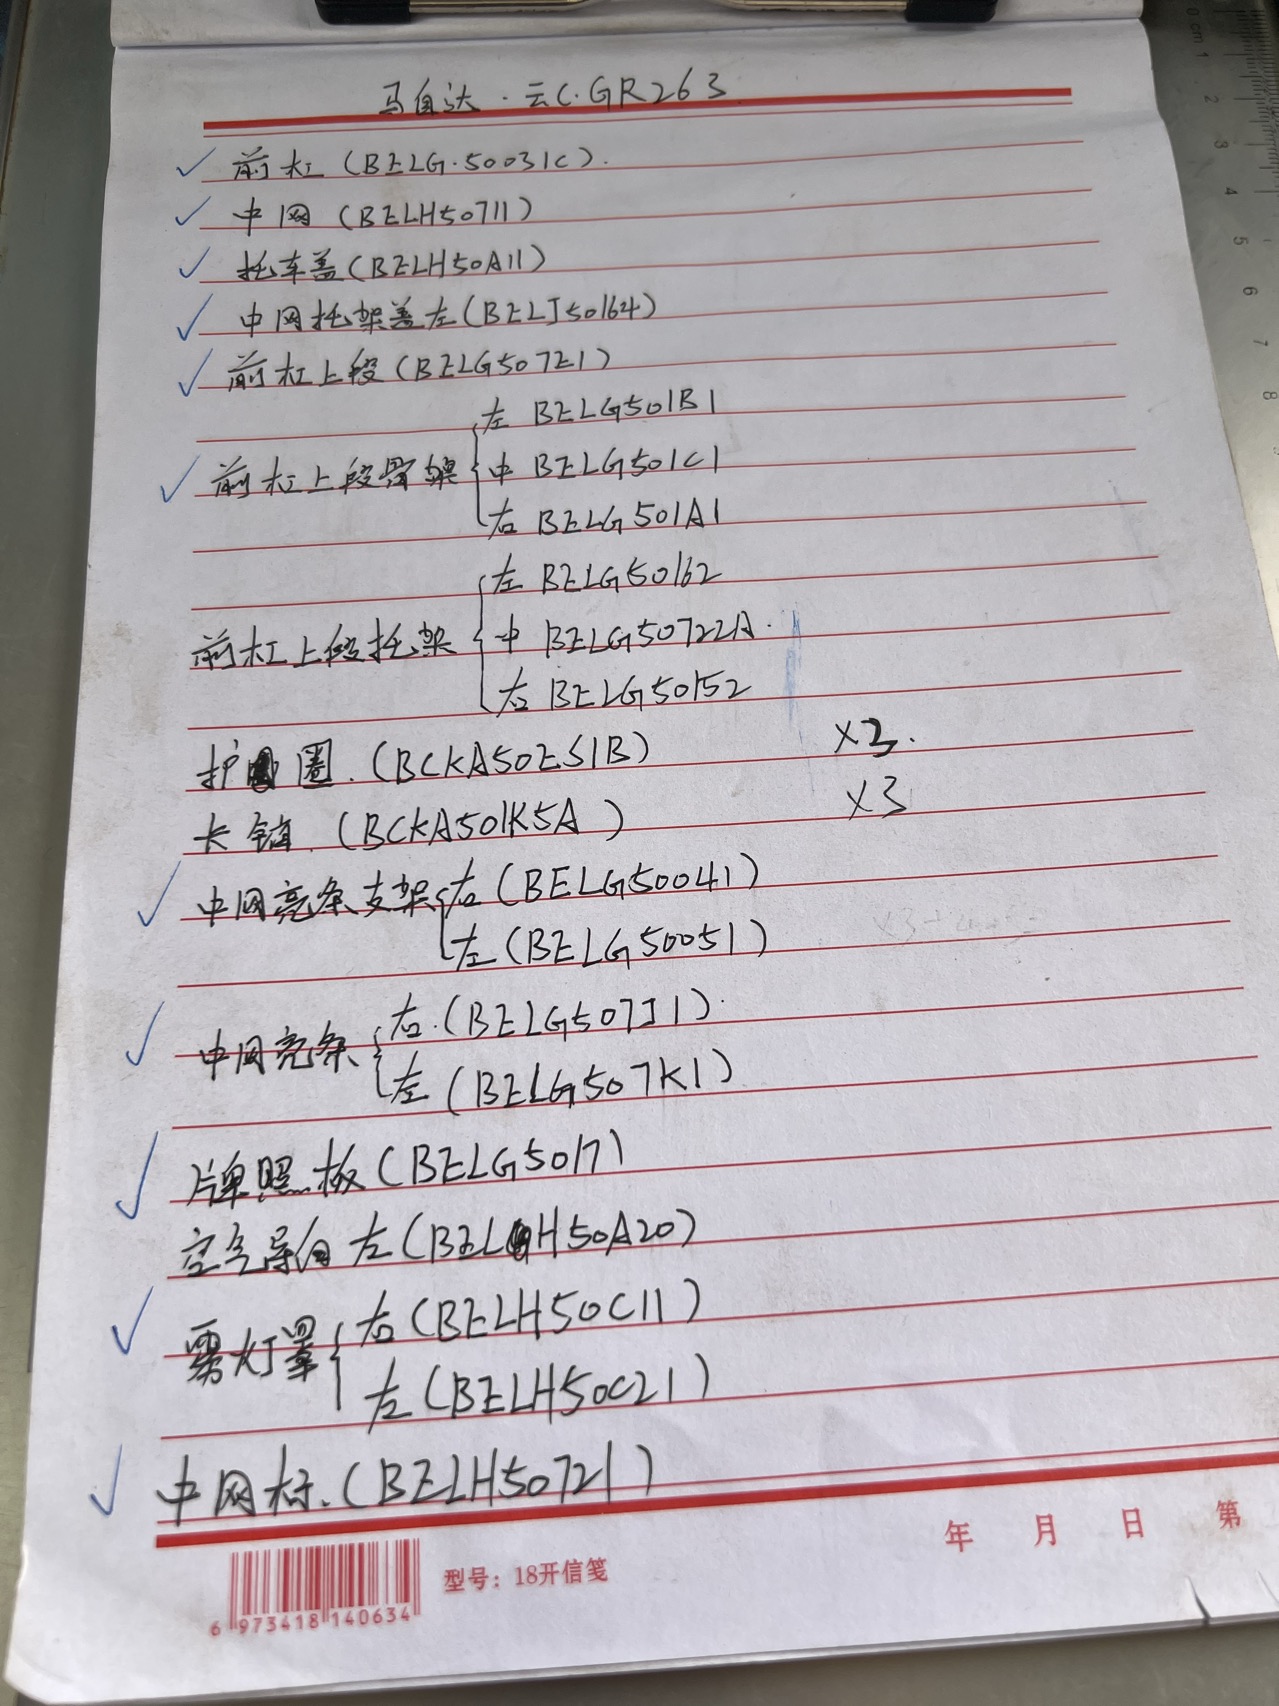 马自达·云C·GR263
✓ 前杠(BELG·50031C).
✓ 中网(BELH50711)
✓ 托车盖(BELH50A11)
✓ 中网托架盖左(BELJ50164)
✓ 前杠上段(BELG507E1)
左 BELG501B1
✓ 前杠上段骨架 中 BELG501C1
右 BELG501A1
左 BELG50162
前杠上段托架 中 BELG50722A.
右 BELG50152
护圈.(BCKA50ES1B) ×3.
长销.(BCKA501K5A) ×3
✓ 中网亮条支架 右(BELG50041)
左(BELG50051)
✓ 中网亮条 右.(BELG507J1).
左(BELG507K1)
✓ 牌照板(BELG5017)
空气导向左(BELH50A20)
✓ 雾灯罩 右(BELH50C11)
左(BELH50C21)
✓ 中网标.(BELH50721)
年 月 日 第
型号：18开信笺
6 973418 140634
0 cm 1 2 3 4 5 6 7 8